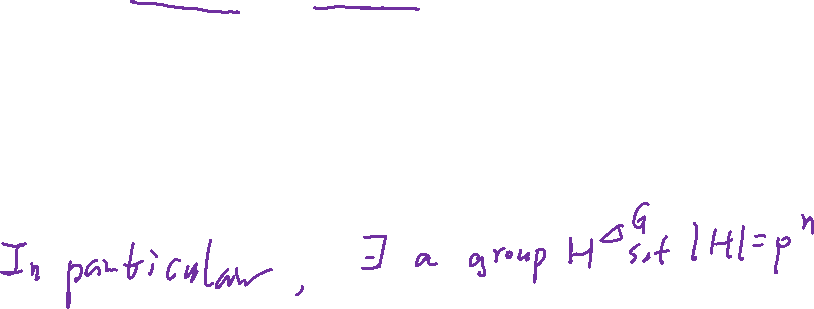 In particular, ∃ a group H ⊲ G s.t |H|=pⁿ